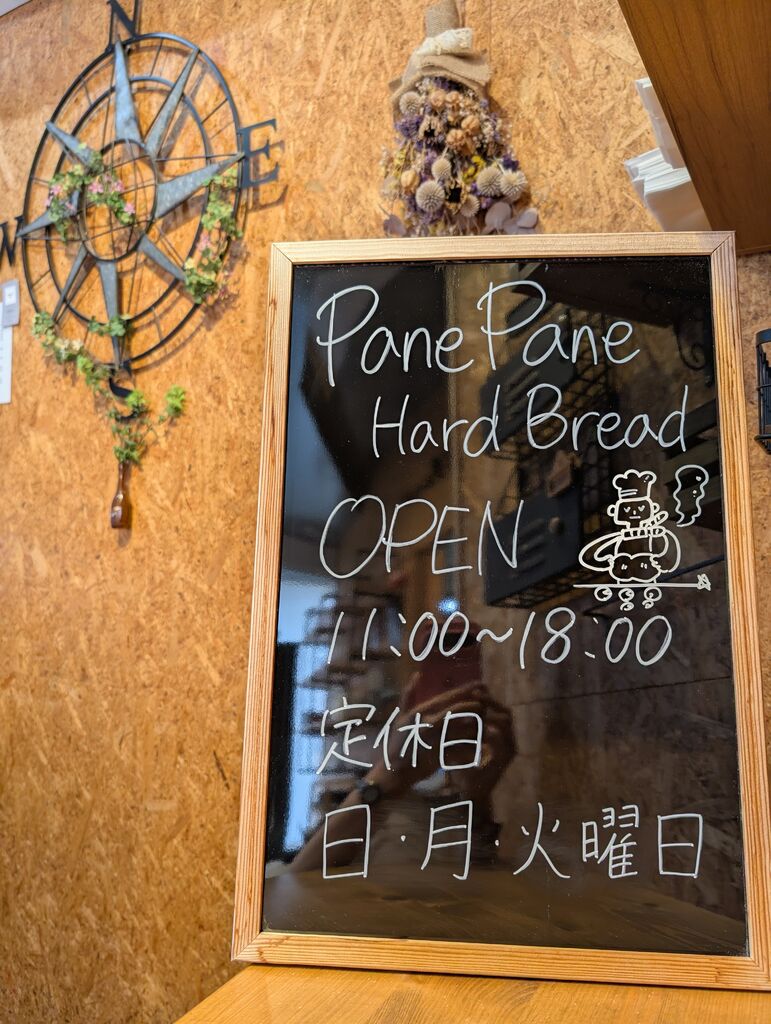 N
E
W
Pane Pane
Hard Bread
OPEN
11:00~18:00
定休日
日・月・火曜日